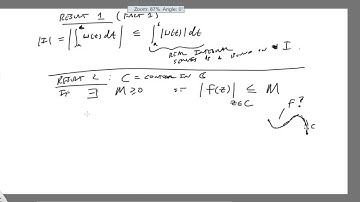 Zoom: 67% Angle: 0°
RESULT 1 (FACT 1)
|I| = |∫ₐᵇ w(t) dt| ≤ ∫ₐᵇ |w(t)| dt
REAL INTEGRAL
SERVES AS A BOUND ON I.
RESULT 2: C = CONTOUR IN ℂ
IF ∃ M ≥ 0 ST |f(z)| ≤ M
z∈C
f?
C